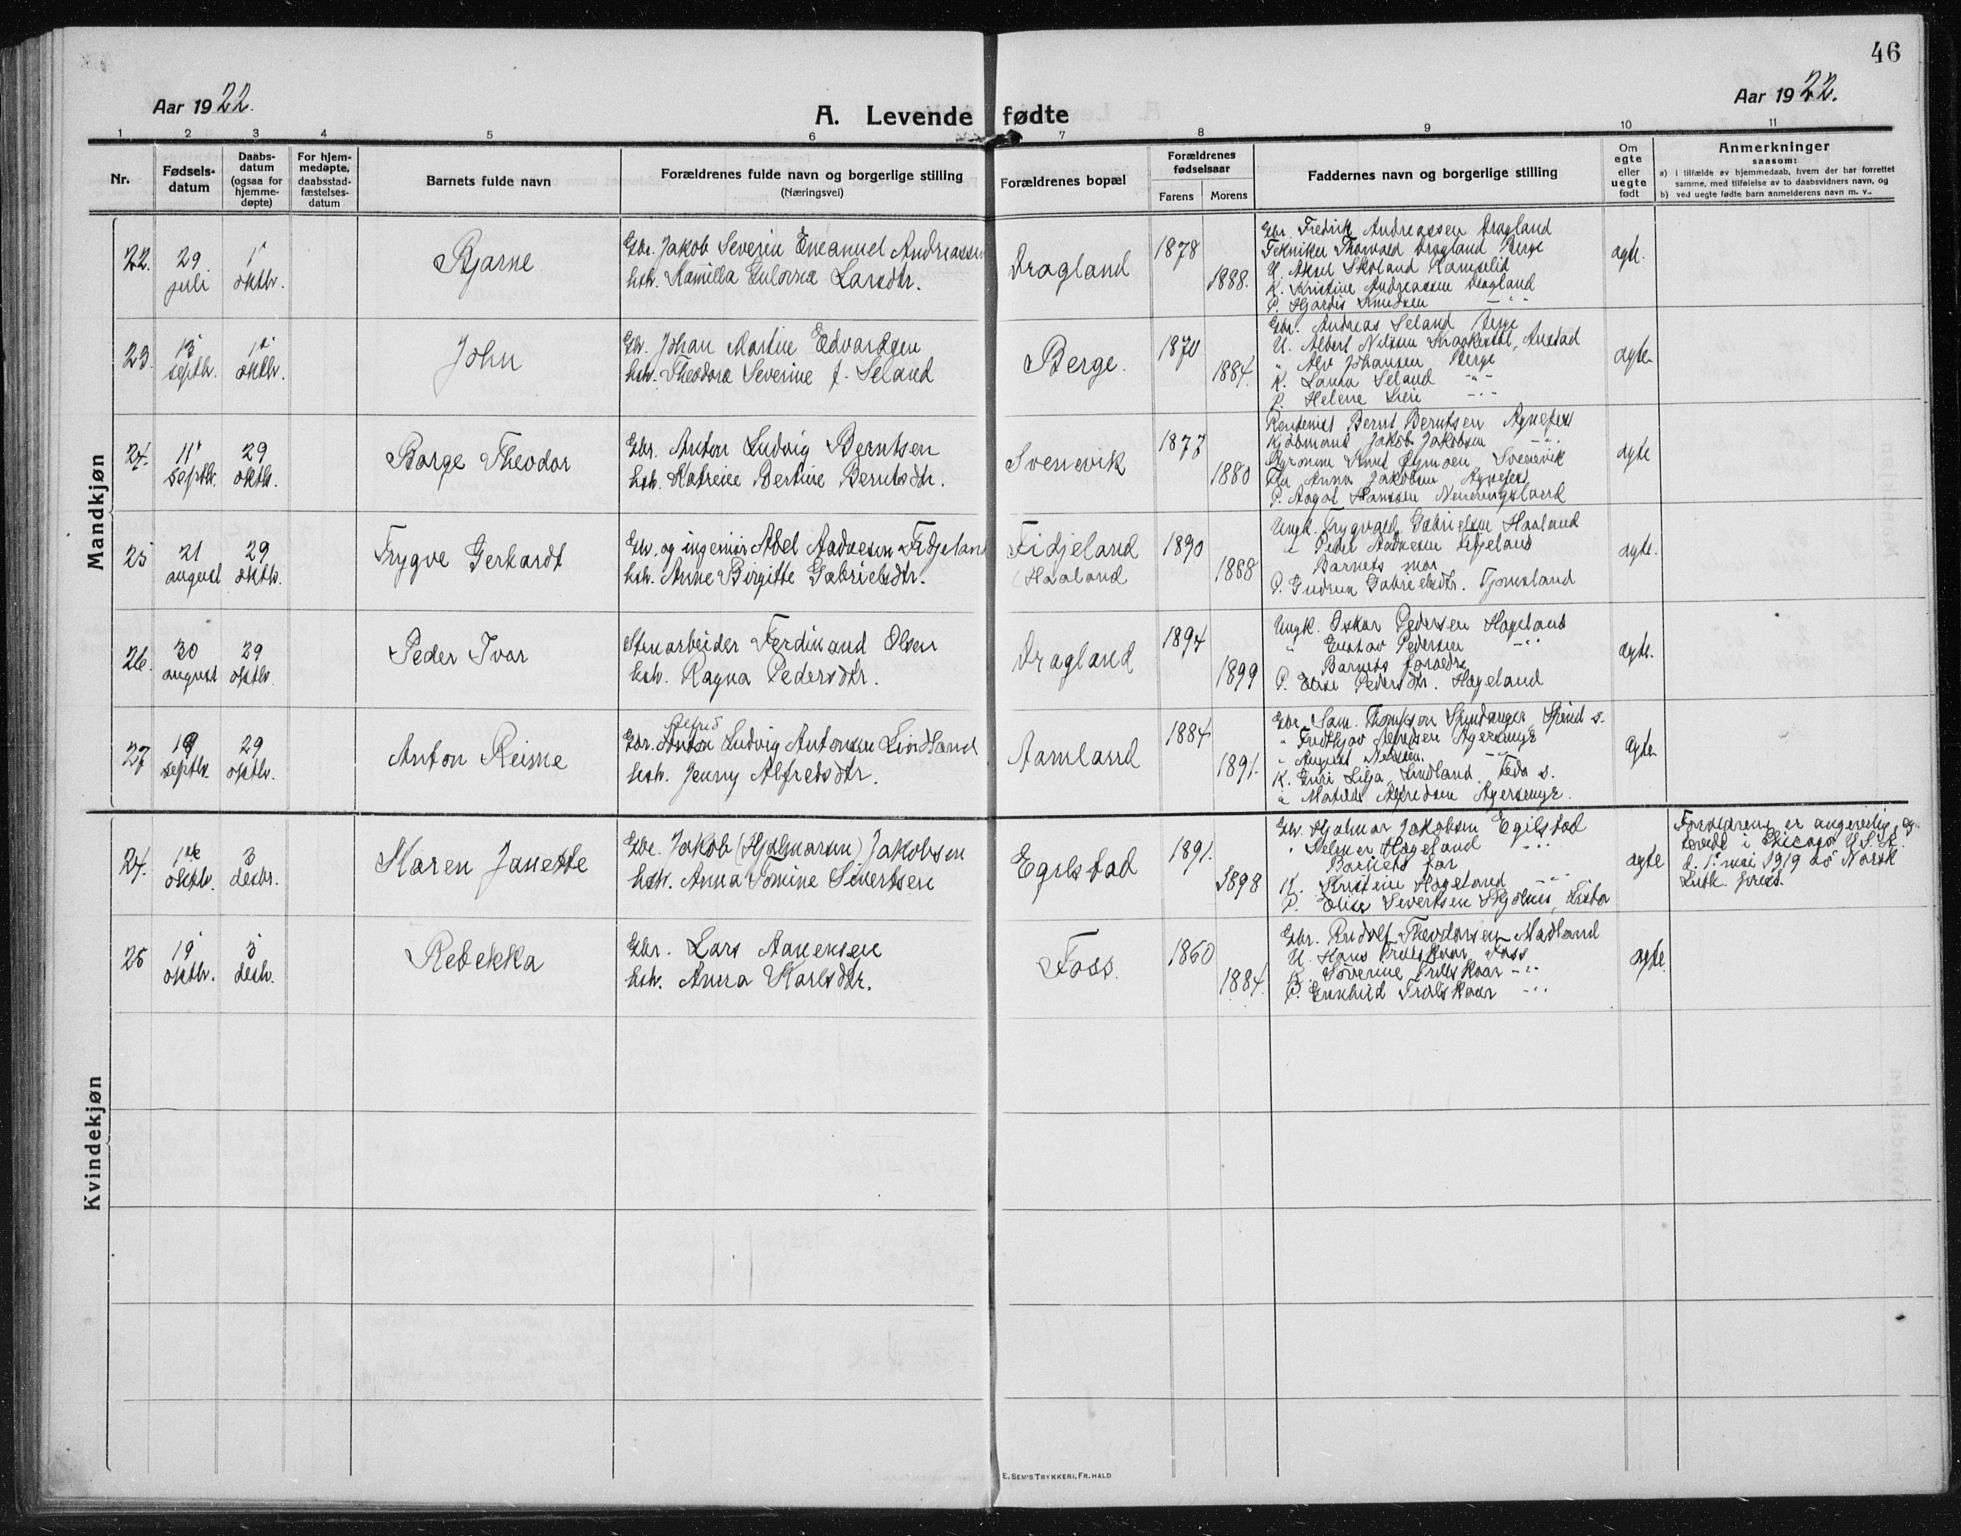 46
Aar 1922.
Aar 1922.
A. Levende fødte
1 2 3 4 5 6 7 8 9 10 11
Nr.
Fødsels-
datum
Daabs-
datum
(ogsaa for
hjemme-
døpte)
For hjem-
medøpte,
daabsstad-
fæstelses-
datum
Barnets fulde navn
Forældrenes fulde navn og borgerlige stilling
(Næringsvei)
Forældrenes bopæl
Forældrenes
fødselsaar
Farens Morens
Faddernes navn og borgerlige stilling
Om
egte
eller
uegte
født
Anmerkninger
saasom:
a) i tilfælde av hjemmedaab, hvem der har forrettet
samme, med tilføielse av to daabsvidners navn, og
b) ved uegte fødte barn anmelderens navn m. v..
Mandkjøn
22.
29
juli
1
oktbr.
Bjarne
Gbr. Jakob Severin Emanuel Andreassen
hstr. Kamilla Gulovna Larsdtr.
Dragland
1878
1888.
Gbr. Fredrik Andreassen Dragland
Tekniker Thorvald Dragland Berge
U. Aksel Skoland Ramselid
K. Kristine Andreassen Dragland
P. Hjørdis Knudsen -"-
ægte.
23.
13
septb.
1
oktb.
John
Gbr. Johan Martin Edvardsen
hstr. Theodora Severine f. Seland
Berge.
1870
1884.
Gbr. Andreas Seland Berge
U. Albert Nilsen Anstad
" Alv Johansen Berge
K. Laura Seland -"-
P. Helene -"-
ægte
24.
11
septb.
29
oktb.
Borge Theodor
Gbr. Anton Ludvig Berntsen
hstr. Katrine Bertine Berntsdtr.
Svenevik
1877
1880
Rentenist Bernt Berntsen Agnefest
Kjøbmand Jakob Jakobsen -"-
Knut Svenevik
Fru Anna Jakobsen Agnefest
P. Aagot Hanssen
ægte
25
21
august
29
oktb.
Trygve Gerhardt
Gbr. og ingeniør Abel Aadnesen Fidjeland
hstr. Anne Birgitte Gabrielsdtr.
Fidjeland
(Haaland
1890
1888
Ungk. Trygvald Gabrielsen Haaland
" Peder Aadnesen Fidjeland
Barnets mor
P. Gudrun Gabrielsdtr. Tjomsland
ægte.
26.
30
august
29
oktb.
Peder Ivar
Stenarbeider Ferdinand Olsen
hstr. Ragna Pedersdtr.
Dragland
1894
1899
Ungk. Oskar Pedersen Hageland
" Gustav Pedersen -"-
Barnets forældre
P. Elise Pedersdtr. Hageland
ægte.
27
septb
29
oktb.
Anton Reisne
Alfred
Gbr. Ludvig Antonsen Lindland
hstr. Jenny Alfredsdtr.
Aamland
1884
1891.
Gbr. Sam. Thompson Spind s.
" Fridtjov Agersenge
" August Nilsen. -"-
K. Guri Lilja Lindland Feda s.
" Matilde Alfredsen Agersenge.
ægte
Kvindekjøn
24.
oktb.
3
desbr.
Maren Janette
Gbr. Jakob (Hjalmarsen) Jakobsen
hstr. Anna Tomine Sivertsen
Egilstad
1891.
1898
Gbr. Hjalmar Jakobsen Egilstad
" Selmer Hageland -"-
Barnets far
K. Kristine Hageland -"-
P. Elise Sivertsen Lista
ægte
Forældrene er angivelig, ægte-
viedt i Chicago U.S.A.
d. 1 mai 1919 av Norsk
Luth.
25
19
oktbr.
3
desb.
Rebekka
Gbr. Lars Aanensen
hstr. Anna Karlsdtr.
Foss.
1860
1884.
Gbr. Rudolf Theodorsen Nadland
U. Hans Trælskaar Foss
K. Søverine Trælskaar -"-
P. Gunhild Trælskaar -"-
ægte.
E. SEM'S TRYKKERI, FR. HALD